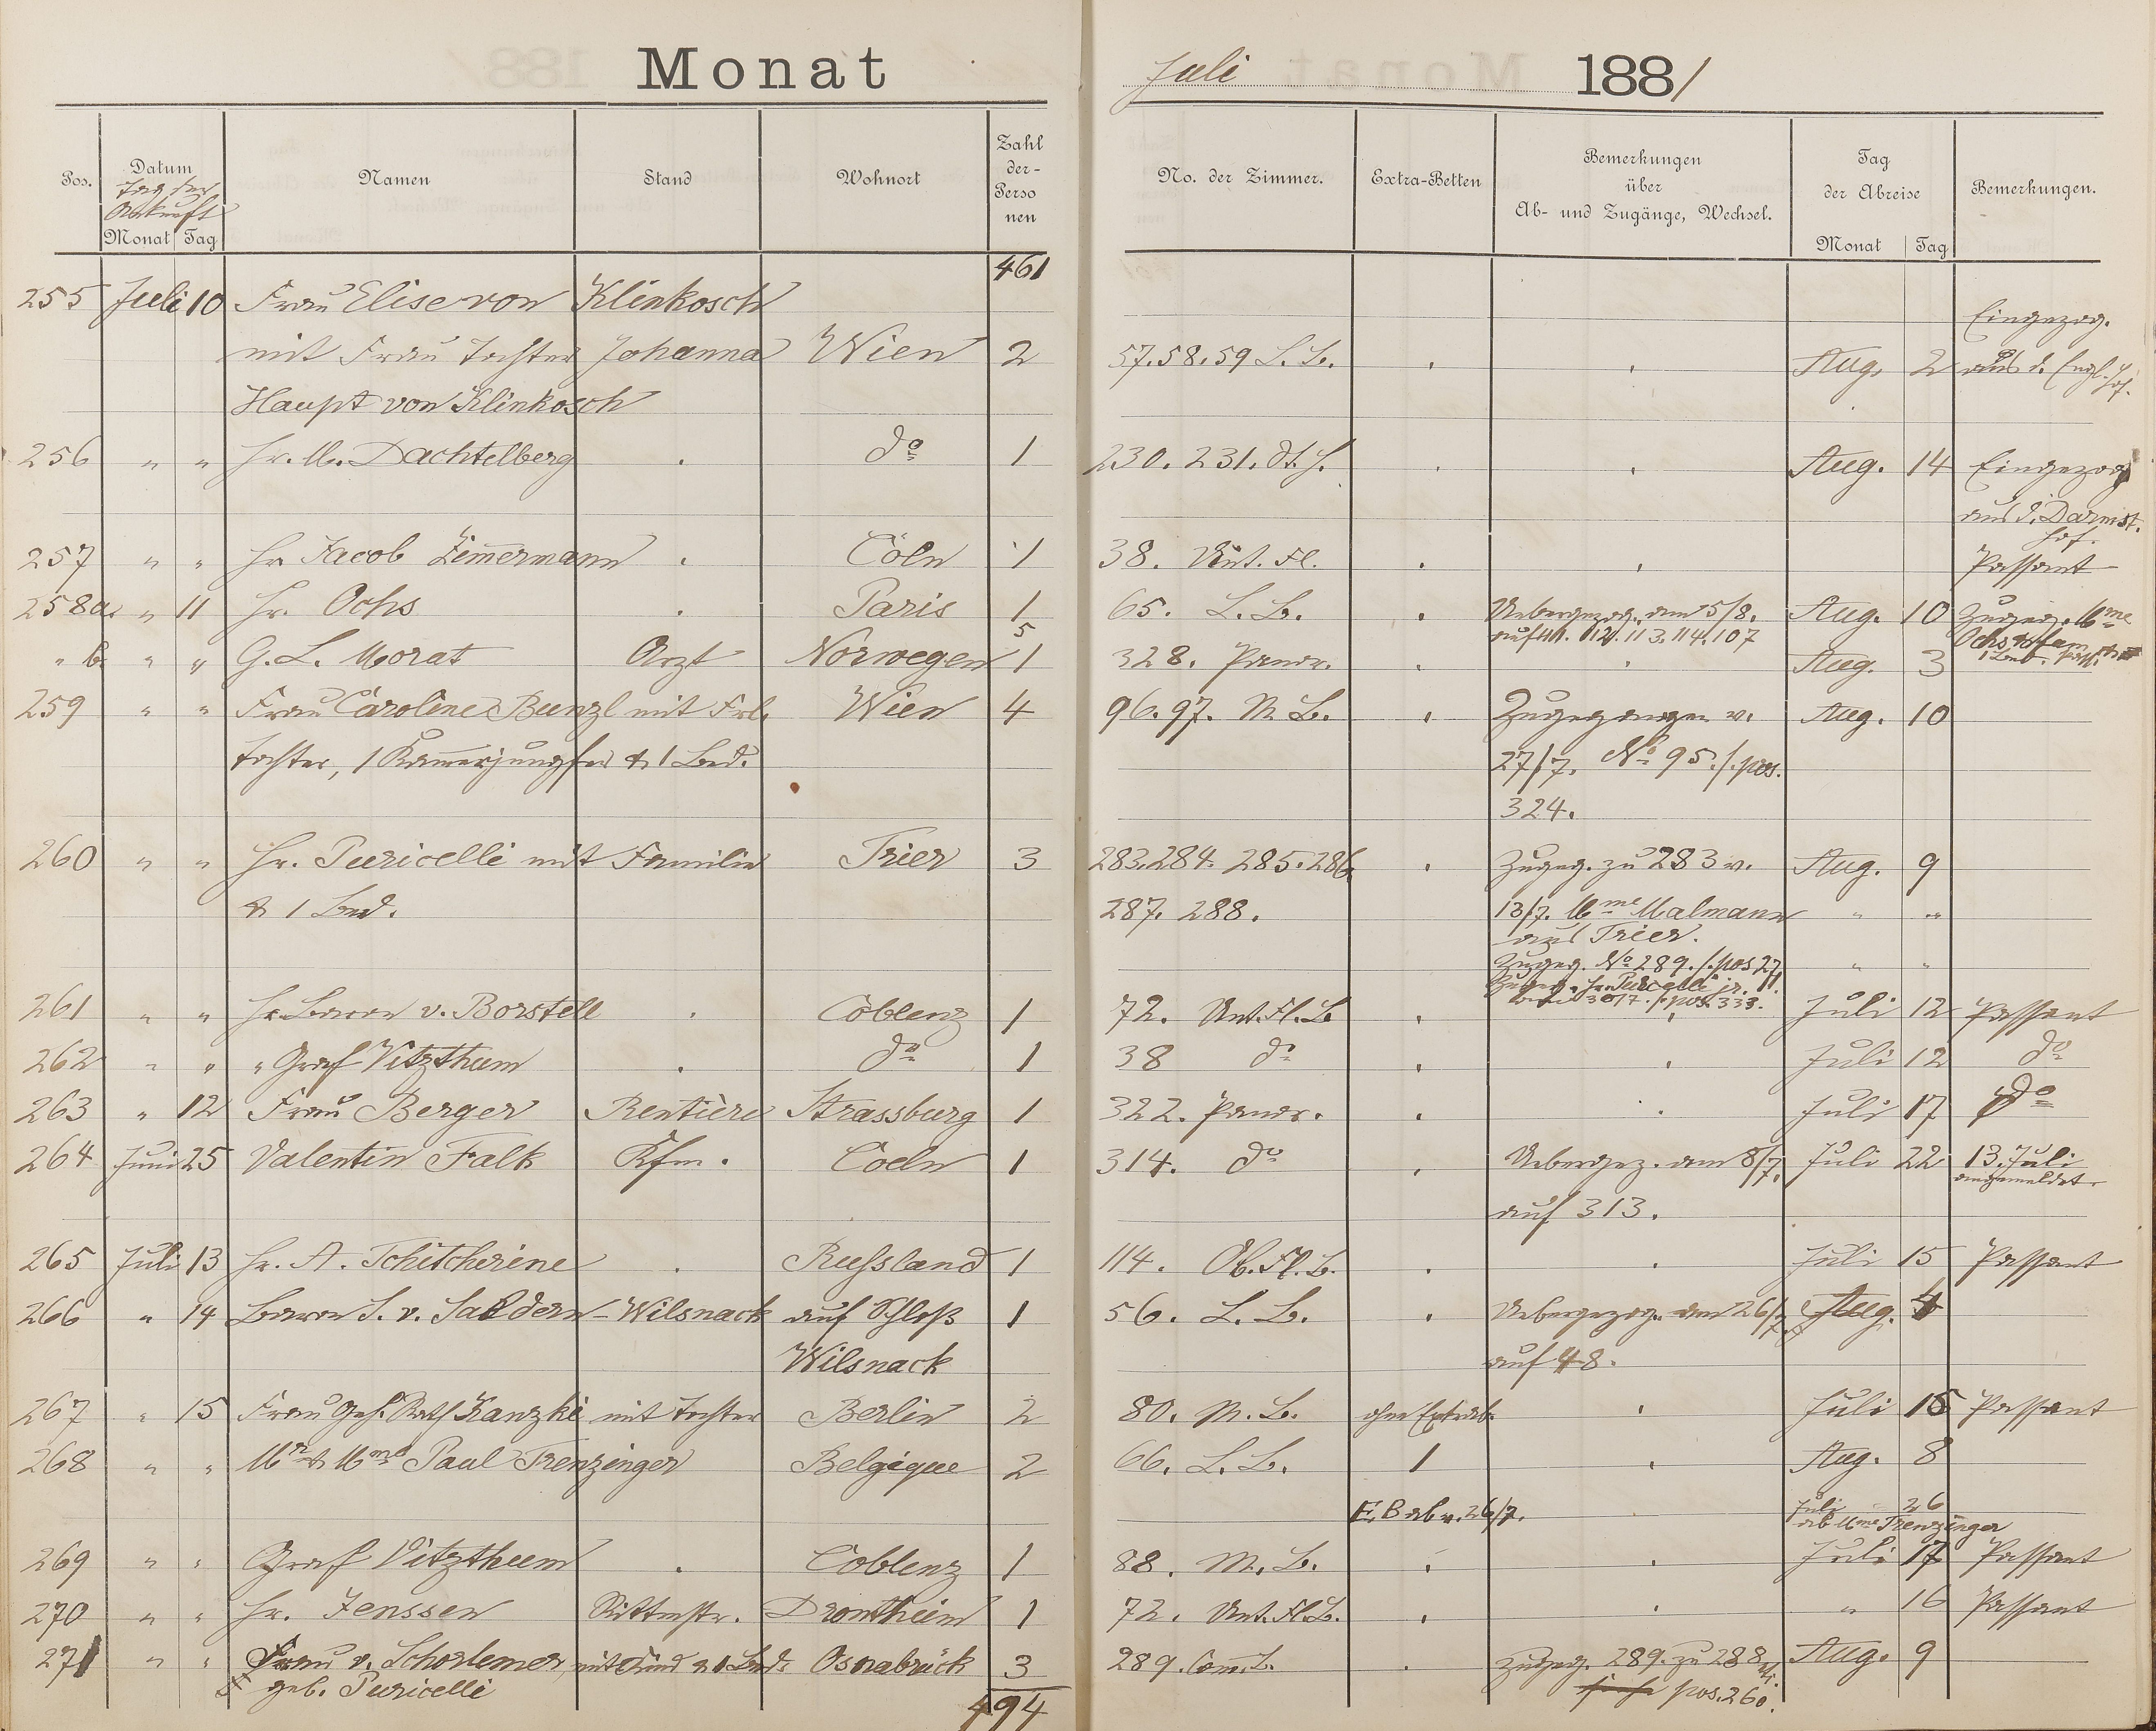 Monat Juli 1881
Pos. Datum Namen Stand Wohnort Zahl der- Perso nen No. der Zimmer. Extra-Betten Bemerkungen über Ab- und Zugänge, Wechsel. Tag der Abreise Bemerkungen.
Tag der Ankunft
Monat Tag Monat Tag
461
255 Juli 10 Frau Elise von Klinkosch Eingezog.
mit Frau Tochter Johanna Wien 2 57.58.59 L. B. Aug. 2 aus d. Engl. Hof.
Haupt von Klinkosch
256 " " Hr. M. Dachtelberg do 1 230. 231. Aug. 14 Eingezog
aus d. Darmst. Hof.
257 " " Hr Jacob Zim̄ermann Cöln 1 38. Unt. Fl. Passant
258a. " 11 Hr. Ochs Paris 1 65. L. B. Uebergezog. am 5/8. Aug. 10 Zugez. Mme
5 auf 111. 112. 113. 114. 107 Ochs & Fam.
" b. " " G. L. Morat Arzt Norwegen 1 328. Aug. 3
259 " " Frau Caroline Bunzl mit Frl. Wien 4 96.97. M. B. Zugegangen v. Aug. 10
Tochter, 1 Kam̄erjungfer & 1 Bed. 27/7. No 95. /. pos.
324.
260 " " Hr. Puricelli mit Familie Trier 3 283.284. 285.286. Zugeg. zu 283 v. Aug. 9
& 1 Bed. 287. 288. 13/7. Mme Malmann " "
aus Trier.
Zugeg. No 289. /. pos 27 " "
Hr. Puricelli jr.
30/7. /. pos. 333.
261 " " Hr. Baron v. Borstell Coblenz 1 72. Unt. Fl. B Juli 12 Passant
262 " " " Graf Vitzthum do 1 38 do Juli 12 do
263 " 12 Frau Berger Rentière Strassburg 1 322. Juli 17 do
264 Juni 25 Valentin Falk Kfm. Coeln 1 314. do Uebergez. am 8/7. Juli 22 13. Juli
angemeldet.
auf 313.
265 Juli 13 Hr. A. Tchitcherine Russland 1 114. Ob. Fl. B. Juli 15 Passant
266 " 14 Baron S. v. Saldern-Wilsnack auf Schloß 1 56. L. B. Uebergezog. am 26/7 Aug. 4
Wilsnack auf 48.
267 " 15 Frau Geh. Rath Kanzki mit Tochter Berlin 2 80. M. B. ohne Extrab. Juli 15 Passant
268 " " Mr & Mme Paul Trenzinger Belgique 2 66. L. B. 1 Aug. 8
E. B ab v. 26/7. Juli 26
ab Mme Trenzinger
269 " " Graf Vitzthum Coblenz 1 88. M. B. Juli 17 Passant
270 " " Hr. Jenssen Rittmstr. Drontheim 1 72. Unt. Fl. B. " 16 Passant
271 " " Frau v. Schorlemer mit Kind & 1 Bed. Osnabrück 3 289. Com̄. B. Zugeg. 289. zu 288 Aug. 9
geb. Puricelli pos. 260.
494